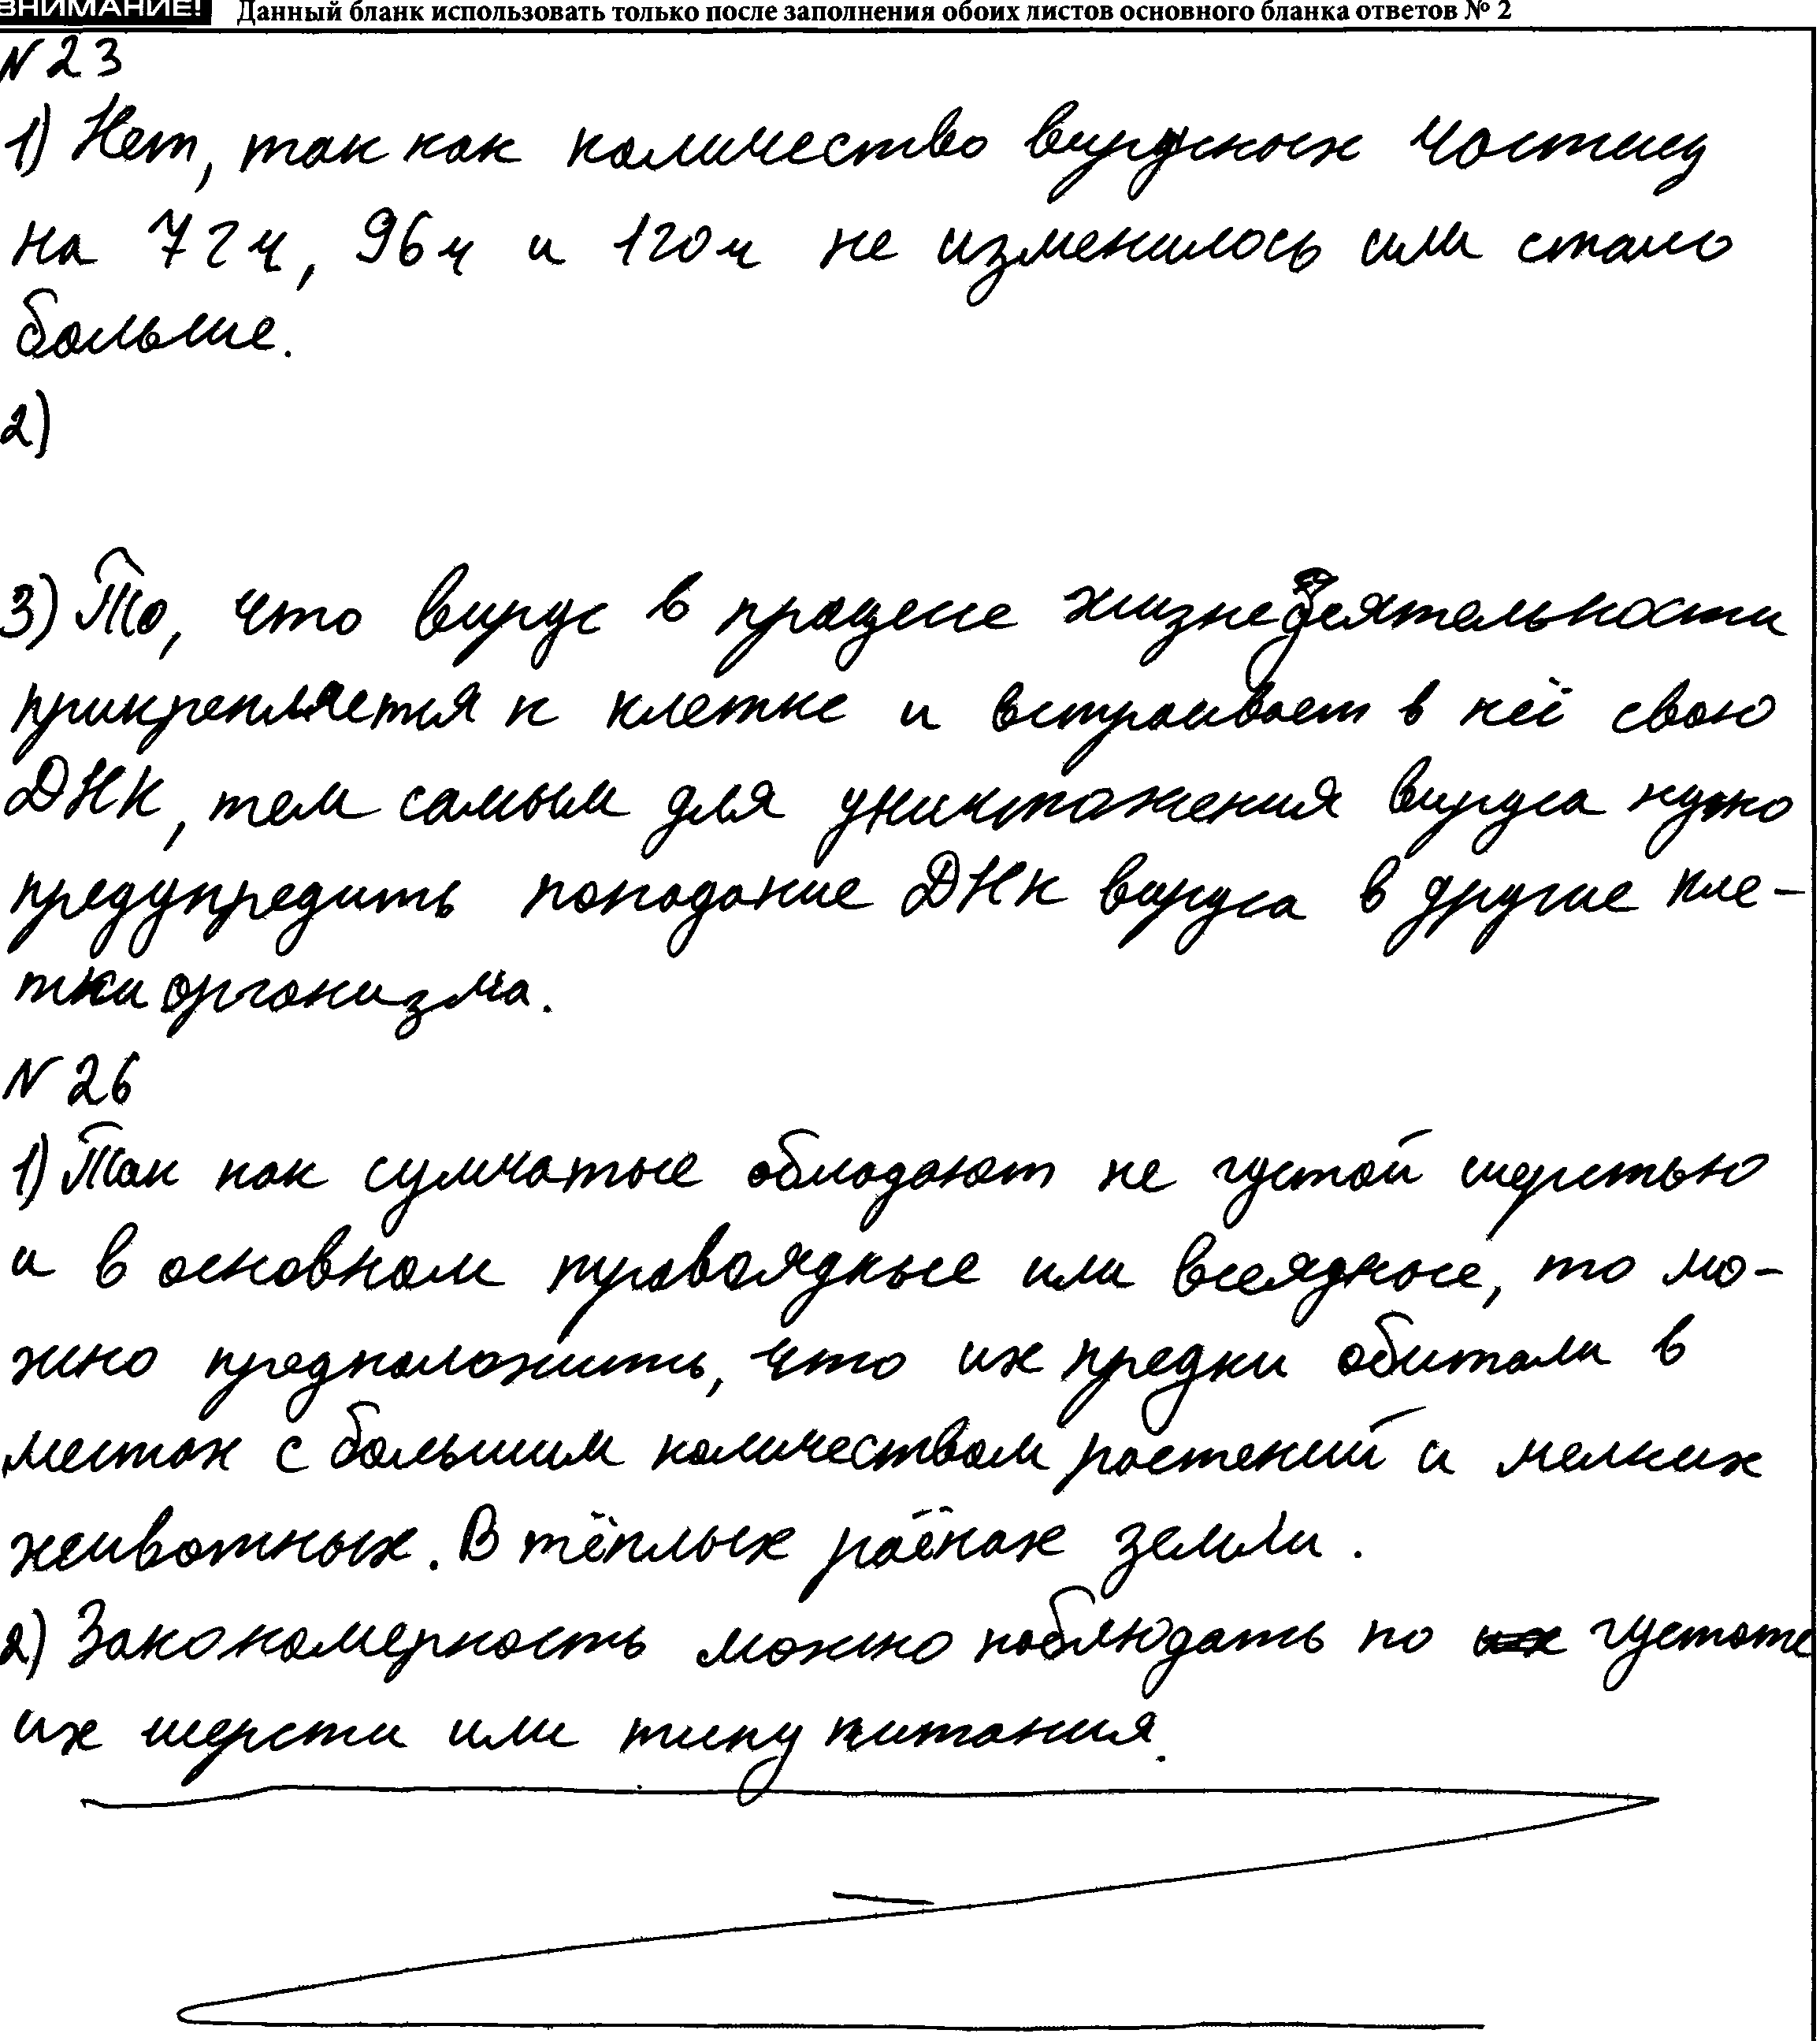 ВНИМАНИЕ! Данный бланк использовать только после заполнения обоих листов основного бланка ответов № 2
N 23
1) Нет, так как количество вирусных частиц
на 72ч, 96ч и 120ч не изменилось или стало
больше.
2)
3) То, что вирус в процессе жизнедеятельности
прикрепляется к клетке и встраивает в неё свою
ДНК, тем самым для уничтожения вируса нужно
предупредить попадание ДНК вируса в другие кле-
тки организма.
N 26
1) Так как сумчатые обладают не густой шерстью
и в основном травоядные или всеядные, то мо-
жно предположить, что их предки обитали в
местах с большим количеством растений и мелких
животных. В тёплых раёнах земли.
2) Закономерность можно наблюдать по густоте
их шерсти или типу питания.